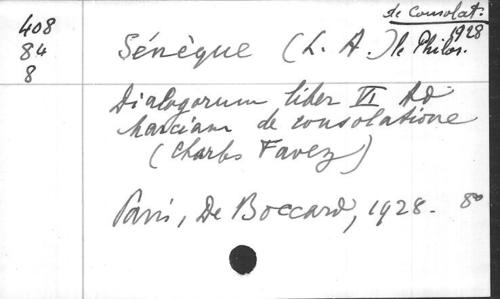 de Consolat.
1928
408
84
8
Sénèque (L. A.) le Philos.
Dialogorum liber VI Ad
Marciam de consolatione
(Charles Favez)
Paris, De Boccard, 1928. 8°